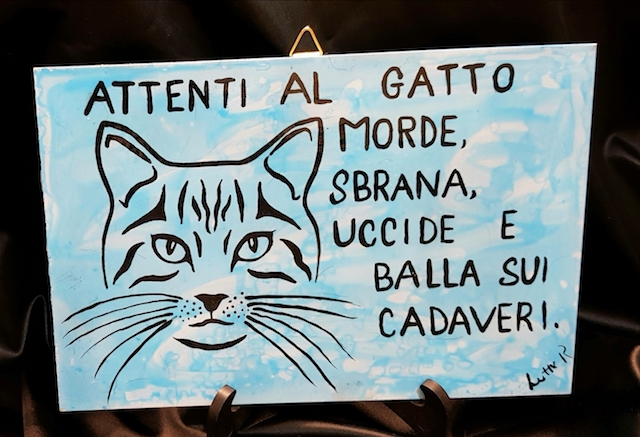 ATTENTI AL GATTO
MORDE,
SBRANA,
UCCIDE E
BALLA SUI
CADAVERI.